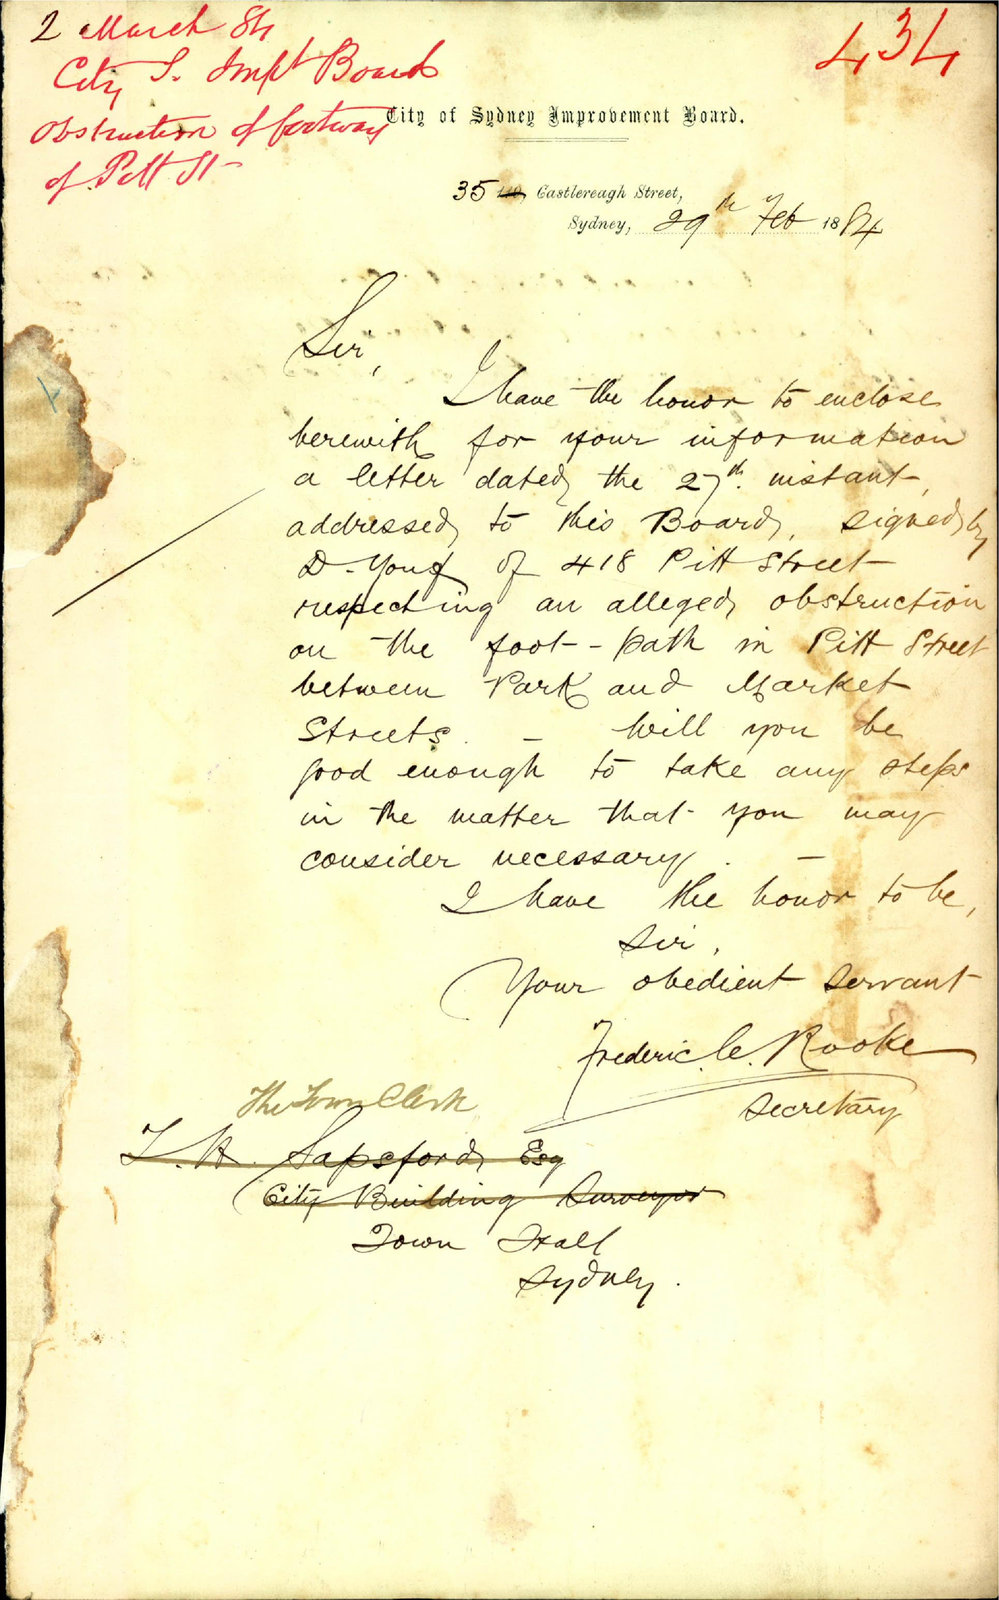 2 March 84
434
City S. Impt Board
Obstruction of footway
of Pitt St
City of Sydney Improvement Board.
35 110, Castlereagh Street,
Sydney, 29th Feb 1884
Sir,
I have the honor to enclose
herewith for your information
a letter dated the 27th. instant,
addressed to this Board, signed by
D. Youf of 418 Pitt Street
respecting an alleged obstruction
on the foot-path in Pitt Street
between Park and Market
Streets. - Will you be
good enough to take any steps
in the matter that you may
consider necessary. -
I have the honor to be,
Sir,
Your obedient Servant
Frederic. C. Rooke
Secretary
The Town Clerk
Sapsford Esq
City Building Surveyor
Town Hall
Sydney.